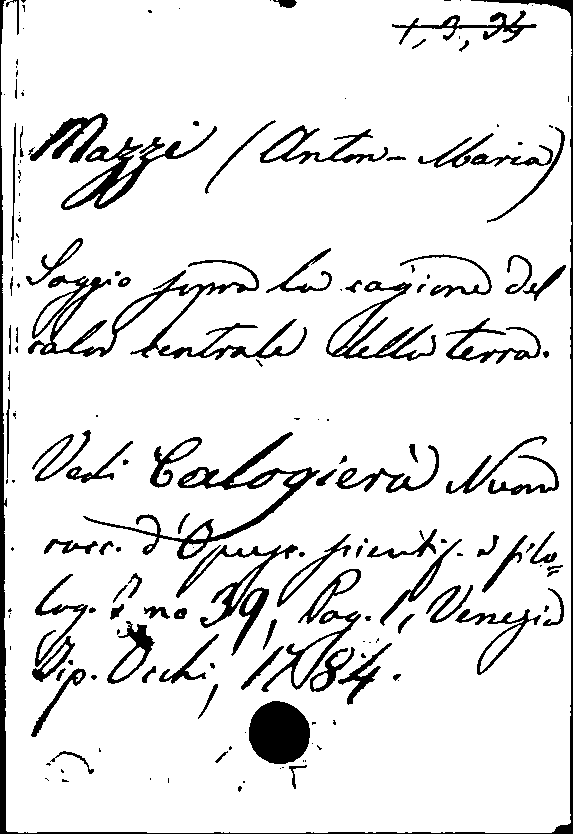 1, 3, 34
Mazzi (Anton-Maria)
Saggio sopra la cagione del
calor centrale della terra.
Vedi Calogierà Nuova
racc. d'Opusc. scientif. e filo=
log. no 39, Pag. 1, Venezia
Tip. Occhi, 1784.